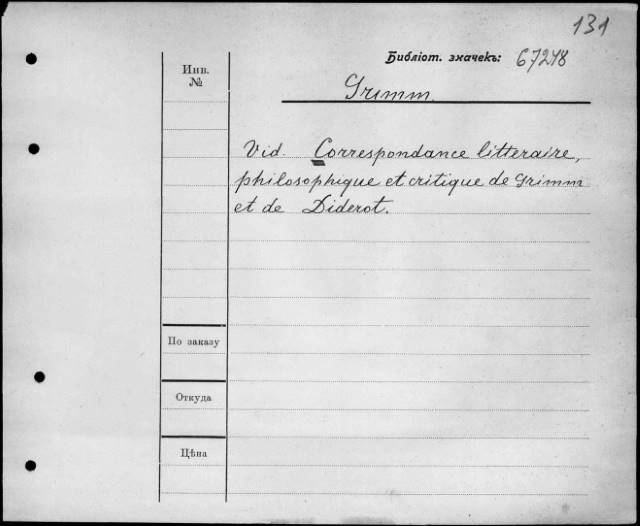 131
Библіот. значекъ: 67248
Инв.
№
Grimm.
Vid. Correspondance litteraire,
philosophique et critique de Grimm
et de Diderot.
По заказу
Откуда
Цѣна